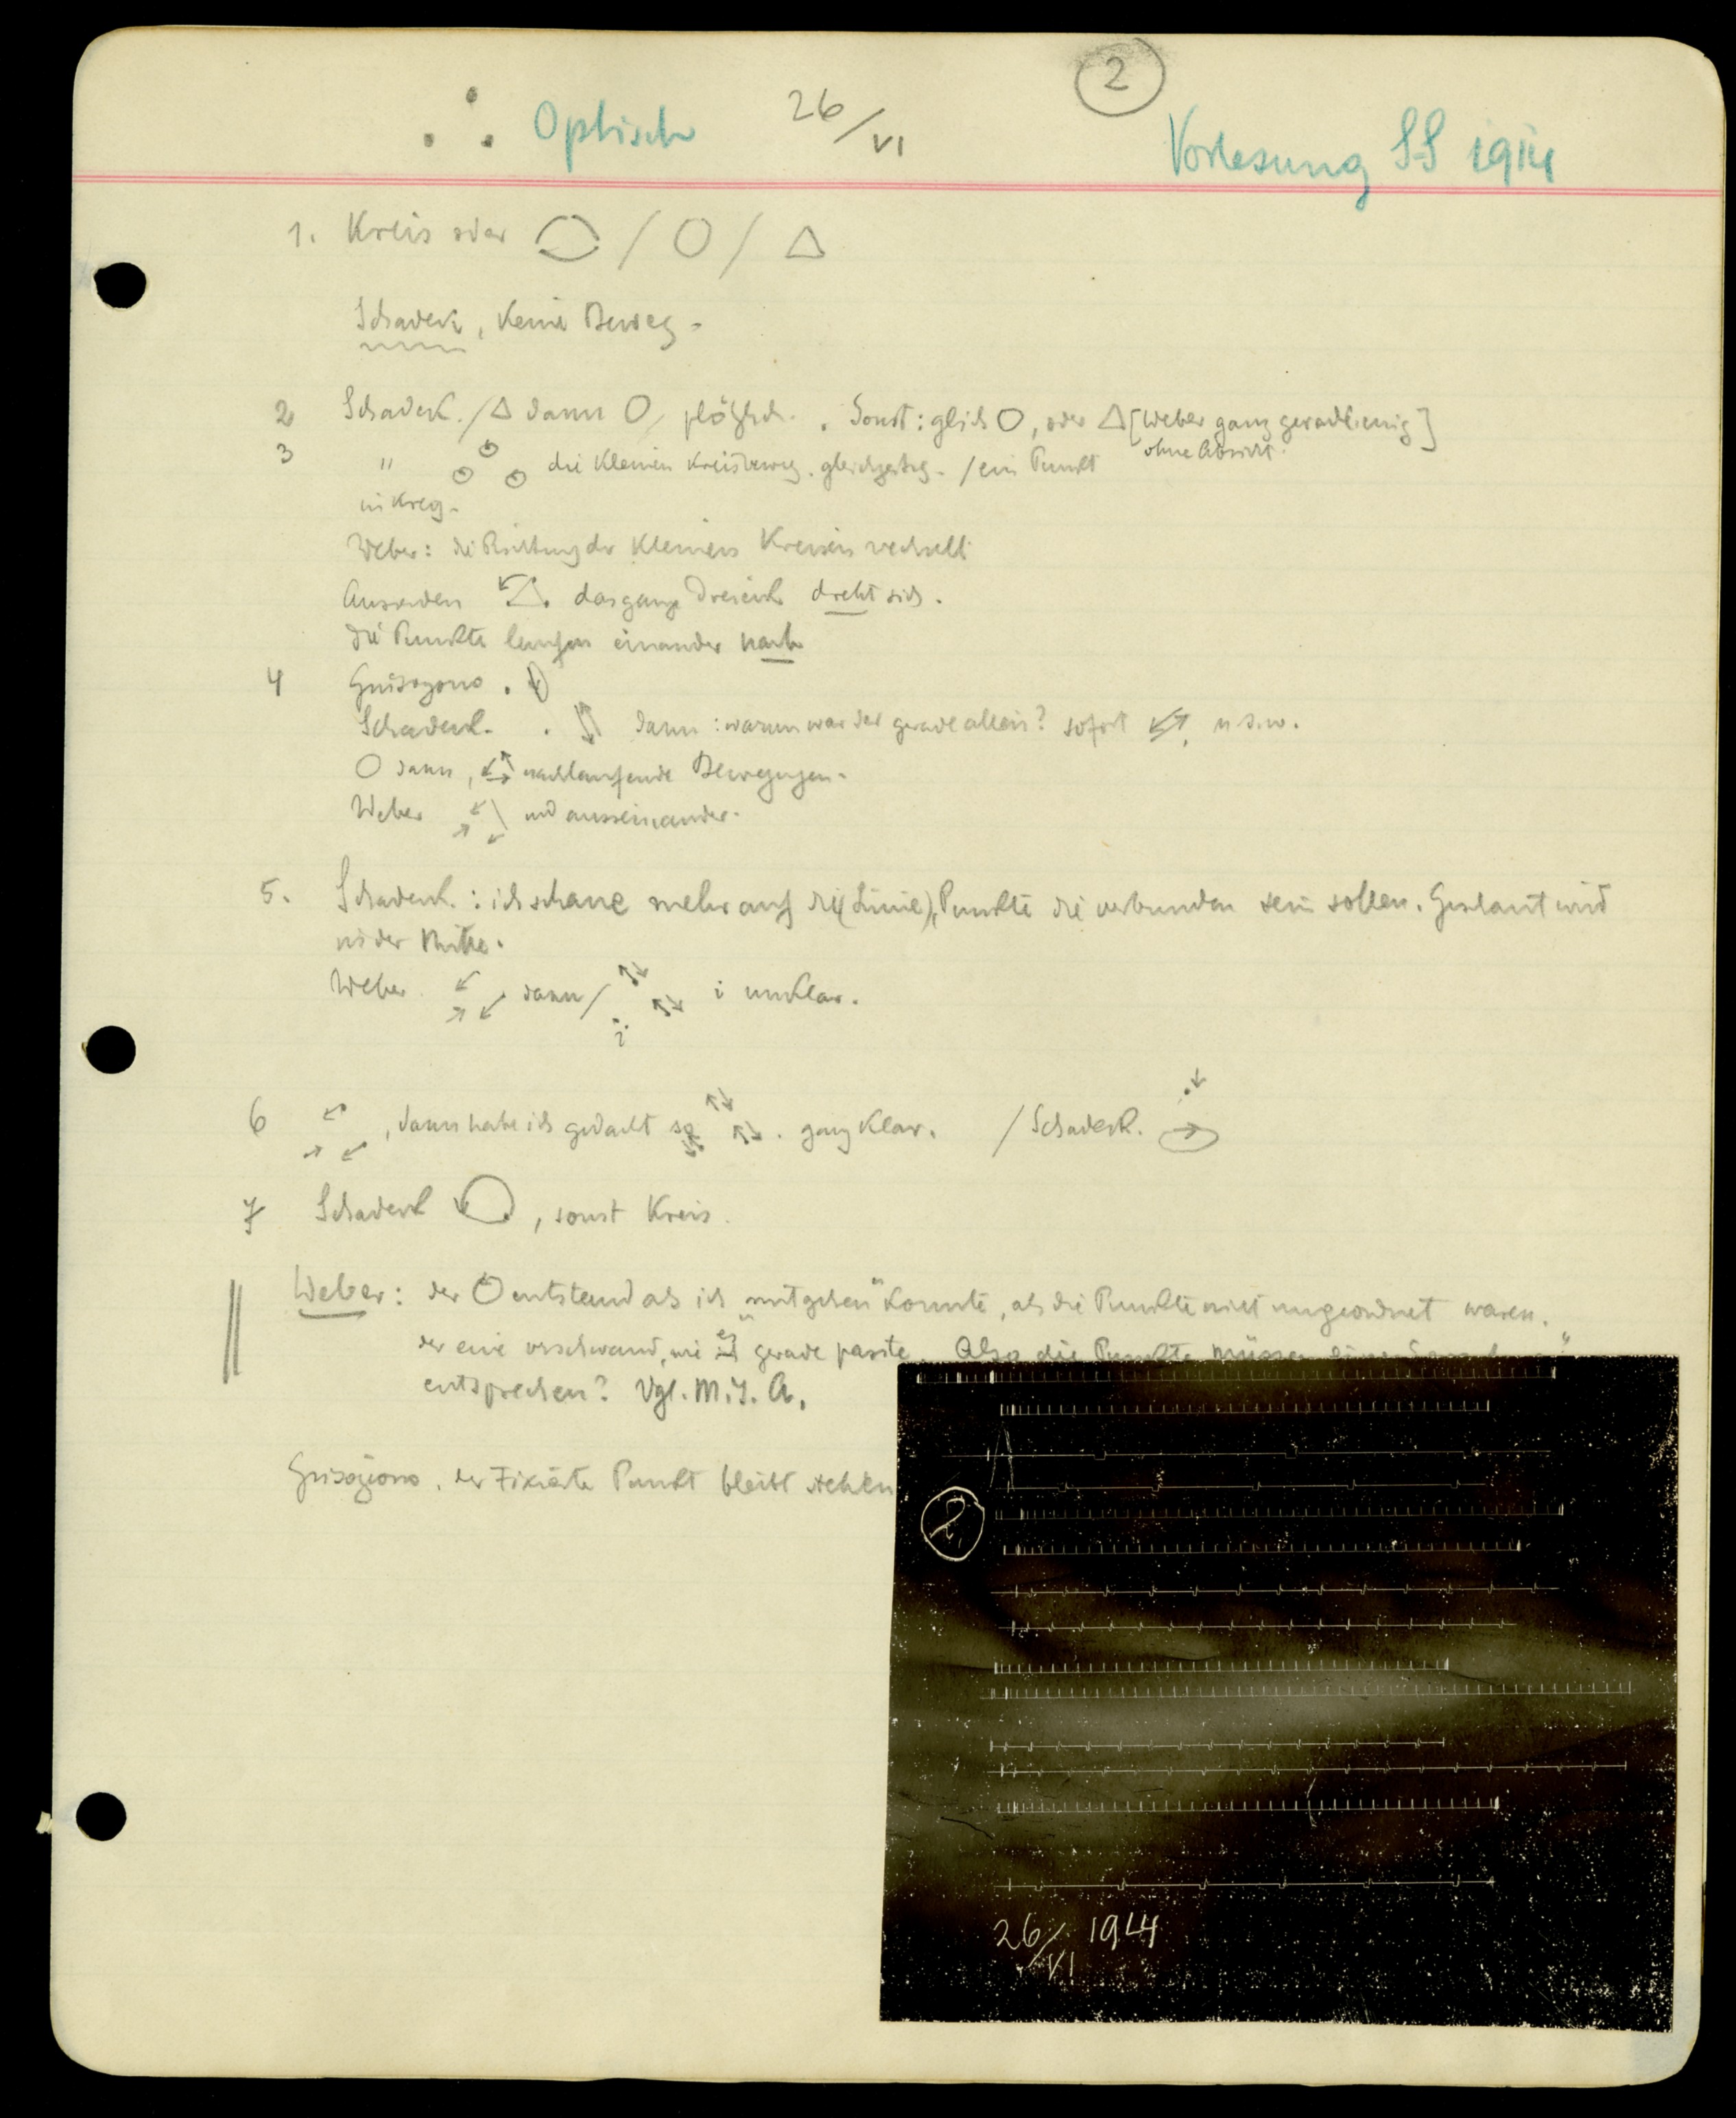 2
Optisch 26/VI Vorlesung SS 1914
1. Kreis oder ○ / ○ / △
Schadek, keine Beweg.
2 Schadek. / △ dann ○, plötzlich. Sonst: gleich ○, oder △ [Weber ganz geradlinig]
ohne Absicht.
3 " die kleinen Kreisbeweg. gleichzeitig. / ein Punkt
Weber: die Richtung der kleinen Kreisen wechselt
das ganze Dreieck dreht sich.
die Punkte laufen einander nach
4 Grisogono.
Schadek. dann: warum war der gerade allein? sofort u.s.w.
○ dann, nachlaufende Bewegungen.
Weber und auseinander.
5. Schadek.: ich schaue mehr auf die (Linie), Punkte die verbunden sein sollen. Geschaut wird
in der Mitte.
Weber dann / i unklar.
i
6 , dann habe ich gedacht so . ganz klar. / Schadek.
7 Schadek ○, sonst Kreis.
Weber: der ○ entstand als ich "mitgehen" konnte, als die Punkte nicht ungeordnet waren.
der eine verschwand, wie es gerade passte. Also die Punkte müssen
entsprechen? Vgl. M. I. A.
Grisogono. der Fixierte Punkt bleibt stehen
2
26/VI 1914